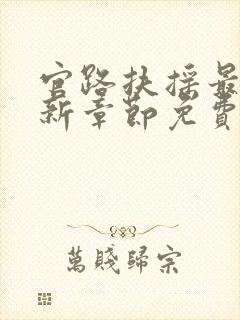 官路扶摇最
新章節免費
萬賤歸宗